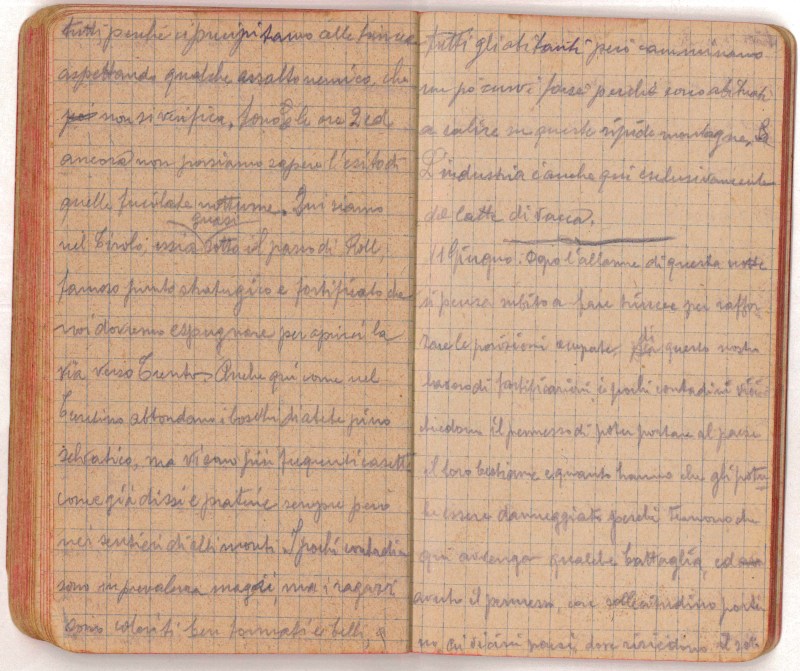 tutti perché ci precipitiamo alle trincee
aspettando qualche assalto nemico, che
poi non si verifica, sono le ore 2 ed
ancora non possiamo sapere l'esito di
quelle fucilate notturne. Qui siamo
quasi
nel Tirolo, ossia sotto il passo di Roll,
famoso punto strategico e fortificato che
noi dovremo espugnare per aprirci la
via verso Trento. Anche qui come nel
abbondano i boschi di abete pino
selvatico, ma vi sono più frequenti casette
come già dissi e praterie sempre però
nei sentieri di alti monti. I pochi contadini
sono in prevalenza magri, ma i ragazzi
sono coloriti ben formati e belli,
tutti gli abitanti però camminano
un pò curvi forse perché sono abituati
a salire su queste ripide montagne,
L'industria è anche qui esclusivamente
del latte di vacca.
11 Giugno. Dopo l'allarme di questa notte
si pensa subito a fare trincee per raffor-
zare le posizioni occupate, questo nostro
lavoro di fortificazioni, i pochi contadini
chiedono il permesso di poter portare al paese
il loro bestiame e quanto hanno che gli potreb-
be essere danneggiato perché temono che
qui avvenga qualche battaglia, ed
avuto il permesso, con sollecitudine porta-
no, ai vicini paesi, dove risiedono il